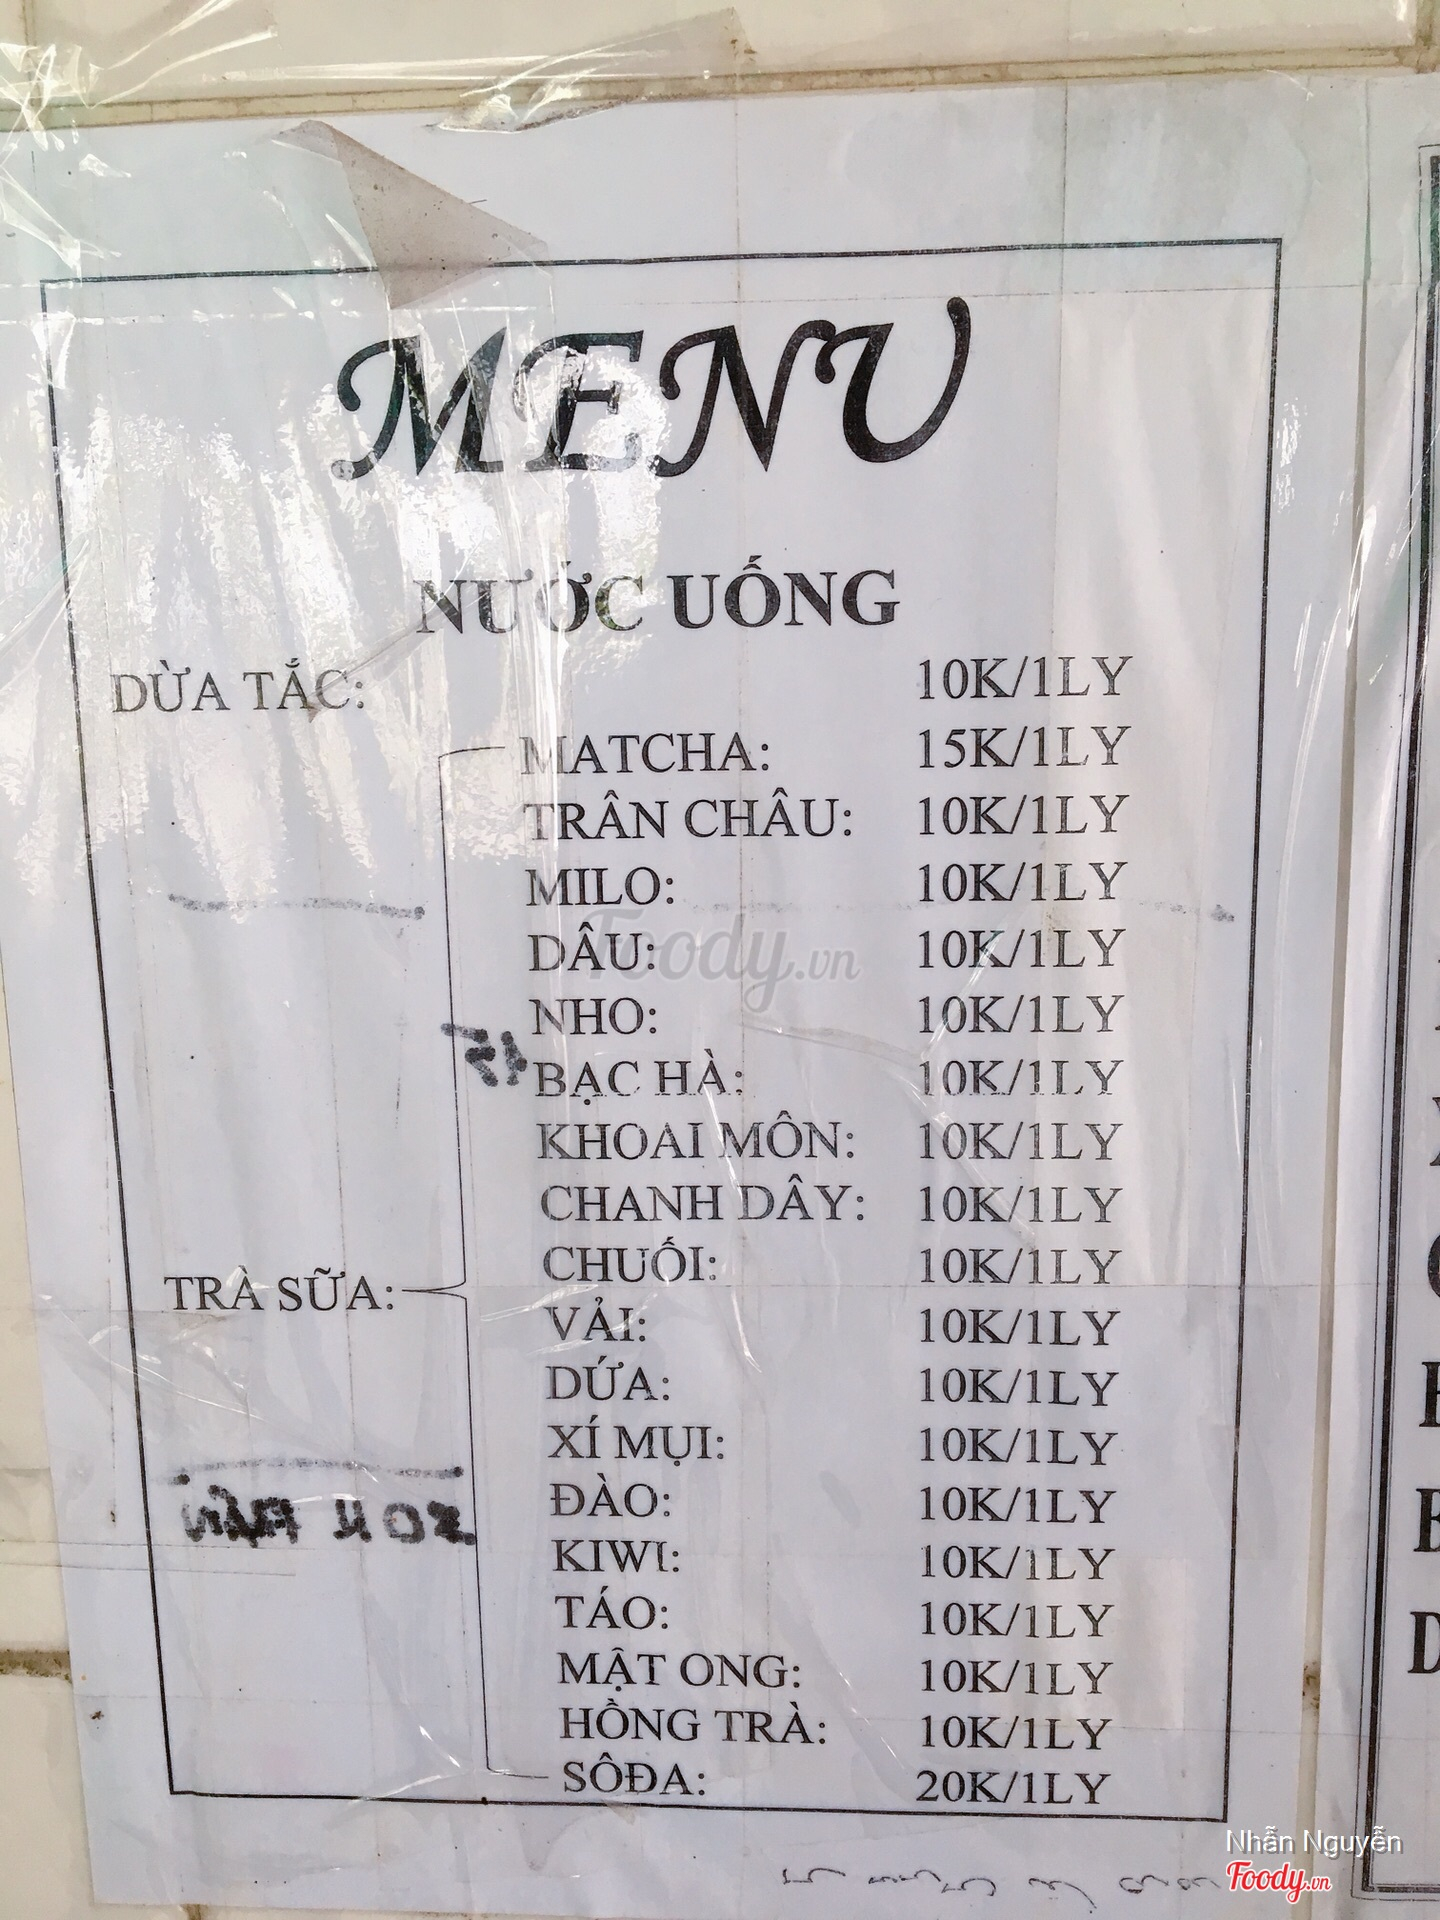 MENU
NƯỚC UỐNG
DỪA TẮC: 10K/1LY
MATCHA: 15K/1LY
TRÂN CHÂU: 10K/1LY
MILO: 10K/1LY
DÂU: 10K/1LY
NHO: 10K/1LY
BẠC HÀ: 10K/1LY
KHOAI MÔN: 10K/1LY
CHANH DÂY: 10K/1LY
CHUỐI: 10K/1LY
TRÀ SỮA:
VẢI: 10K/1LY
DỨA: 10K/1LY
XÍ MỤI: 10K/1LY
ĐÀO: 10K/1LY
KIWI: 10K/1LY
TÁO: 10K/1LY
MẬT ONG: 10K/1LY
HỒNG TRÀ: 10K/1LY
SÔĐA: 20K/1LY
Foody.vn
Nhẫn Nguyễn
Foody.vn